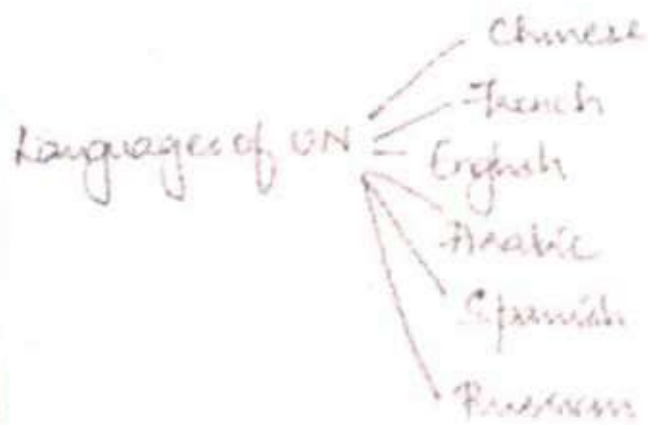 Languages of UN
Chinese
French
English
Arabic
Spanish
Russian